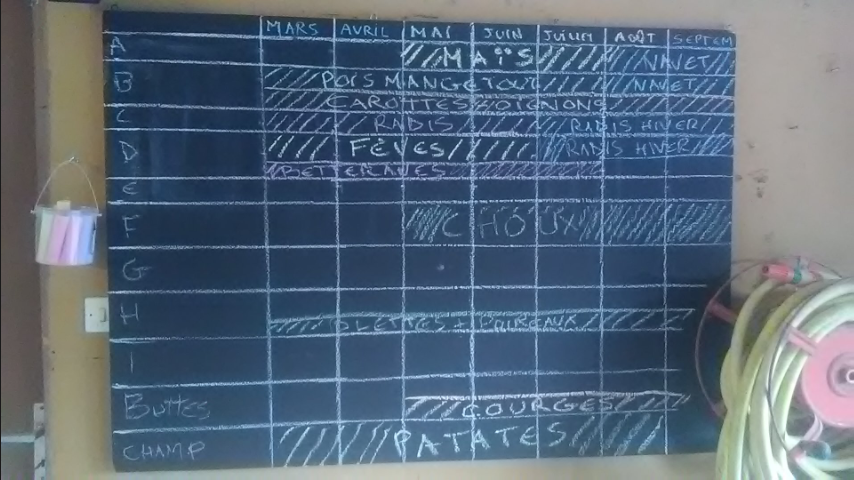 MARS AVRIL MAI JUIN JUILLET AOÛT SEPTEM
A MAÏS NAVET
B POIS MANGETOUT NAVET
CAROTTES OIGNONS
C RADIS RADIS HIVER
D FÈVES RADIS HIVER
BETTERAVES
E
F CHOUX
G
H POIREAUX
I
BUTTES COURGES
CHAMP PATATES